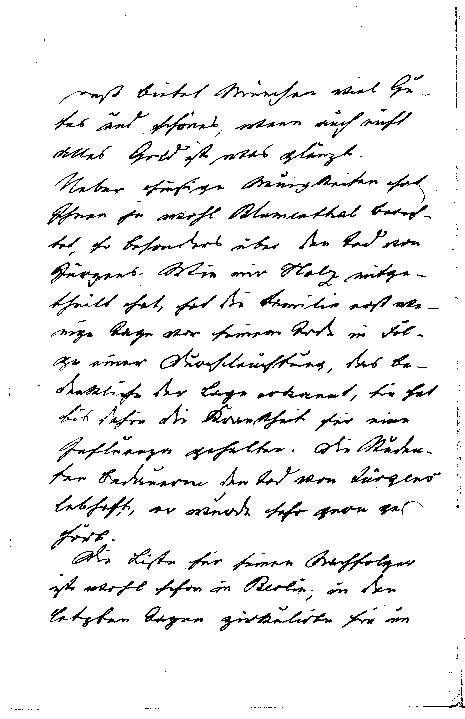 sonst bietet München viel Gu-
tes und schönes, wenn auch nicht
alles Gold ist was glänzt.
Ueber hiesige Neuigkeiten hat
Ihnen ja wohl Blumenthal berich-
tet, so besonders über den Tod von
Jürgens. Wie mir Holz mitge-
theilt hat, hat die Familie erst we-
nige Tage vor seinem Tode in Fol-
ge einer Durchleuchtung, das be-
denkliche der Lage erkannt, sie hat
bis dahin die Krankheit für eine
Influenza gehalten. Die Studen-
ten bedauern den Tod von Jürgens
lebhaft, er wurde sehr gern ge-
hört.
Die Liste für seinen Nachfolger
ist wohl schon in Berlin, in den
letzten Tagen zirkulirte sie im